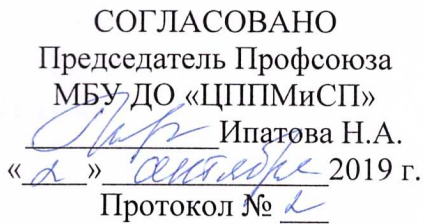 СОГЛАСОВАНО
Председатель Профсоюза
МБУ ДО «ЦППМиСП»
____________Ипатова Н.А.
«_2_»_сентября_2019 г.
Протокол № 2